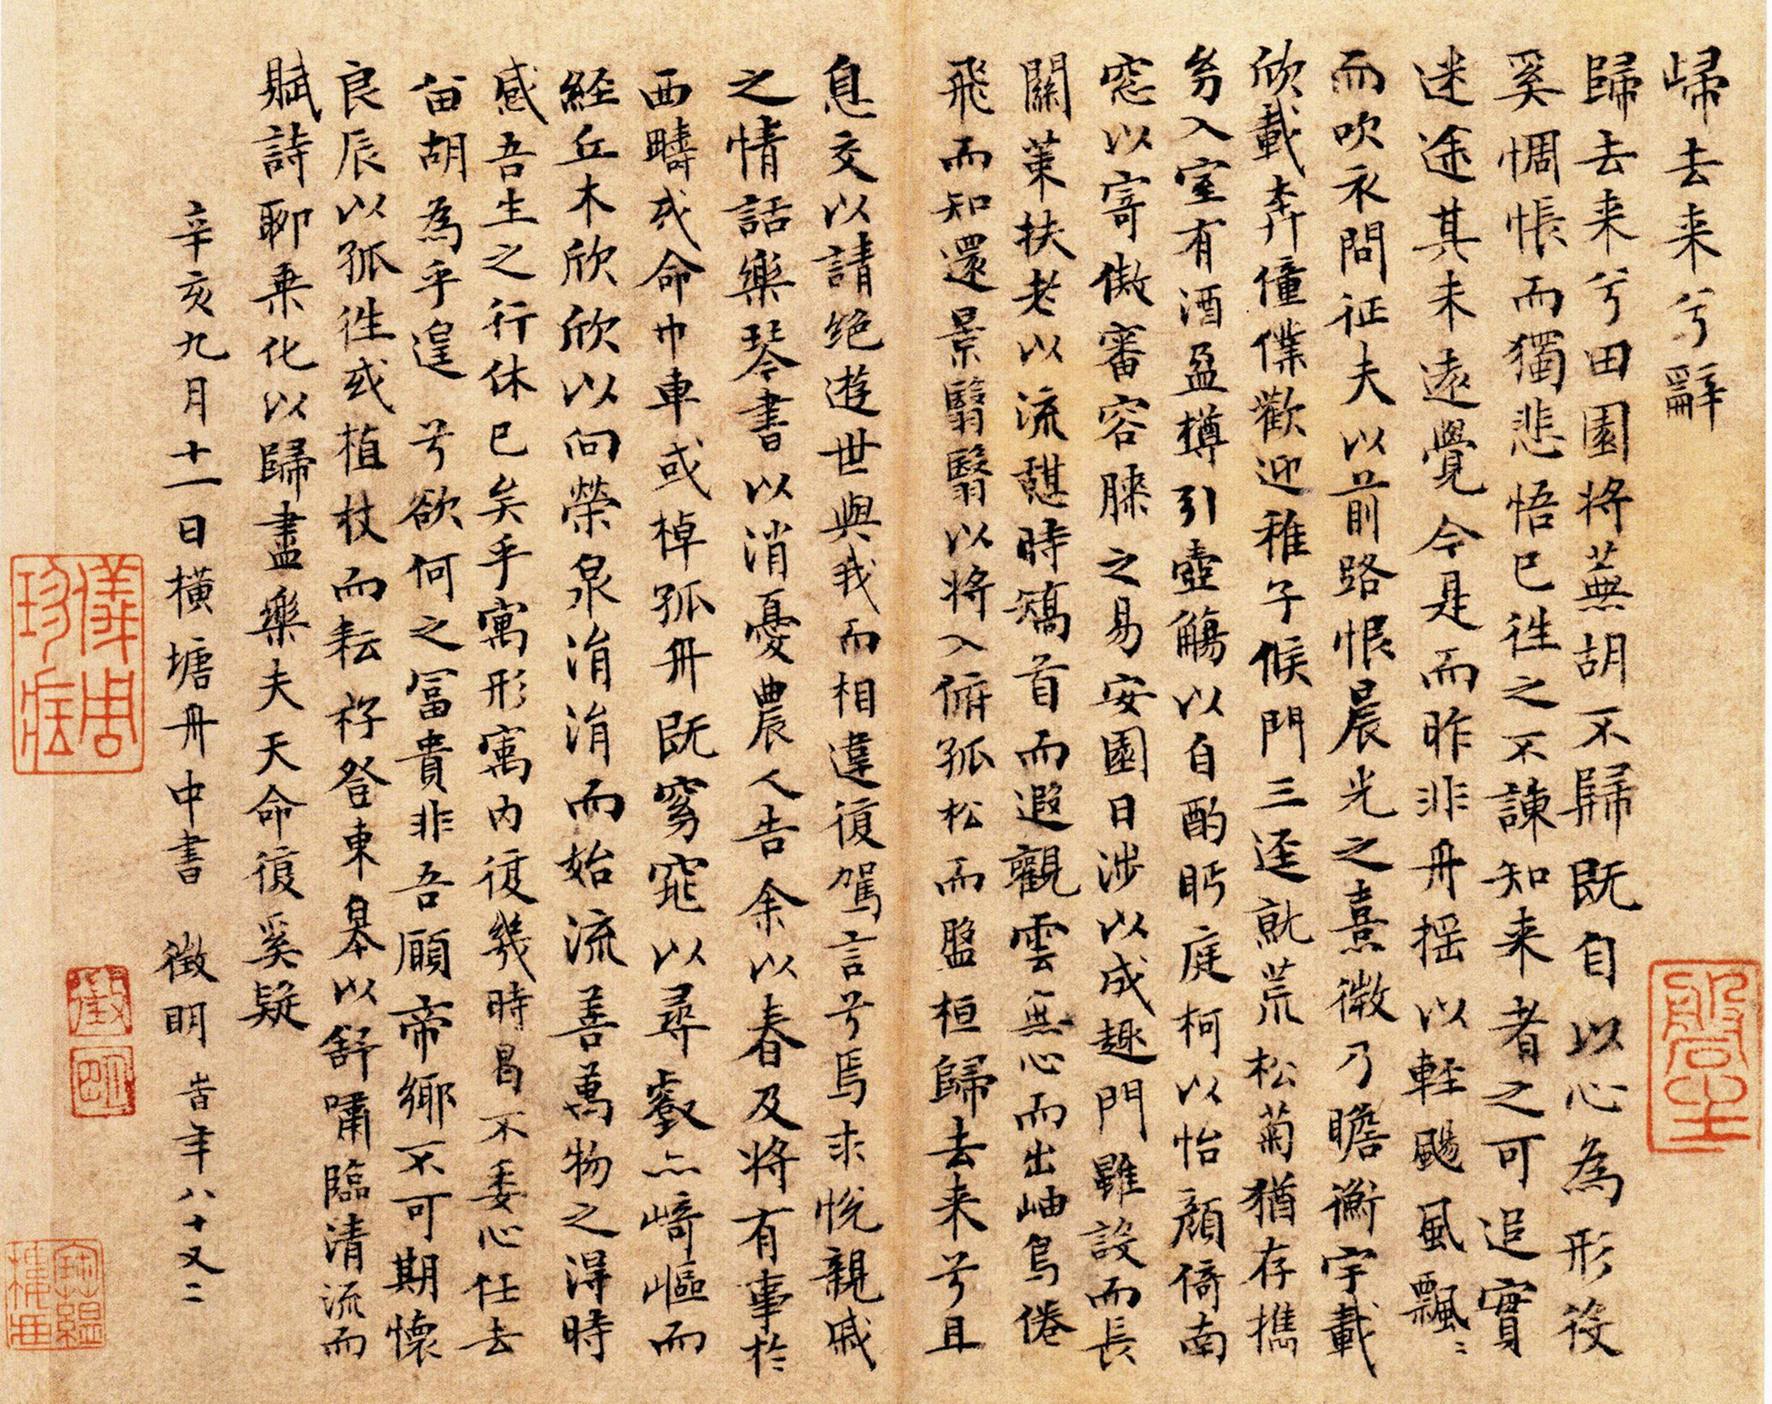 歸去来兮辭
歸去来兮田園将蕪胡不歸既自以心為形役
奚惆悵而獨悲悟已往之不諫知来者之可追實
迷途其未遠覺今是而昨非舟揺以軽颺風飄〻
而吹衣問征夫以前路恨晨光之熹微乃瞻衡宇載
欣載奔僮僕歡迎稚子候門三逕就荒松菊猶存携
幼入室有酒盈樽引壺觴以自酌眄庭柯以怡顔倚南
窓以寄傲審容膝之易安園日涉以成趣門雖設而長
關策扶老以流憩時矯首而遐觀雲無心而出岫鳥倦
飛而知還景翳翳以将入俯孤松而盤桓歸去来兮且
息交以請絶遊世與我而相違復駕言兮焉求悅親戚
之情話樂琴書以消憂農人告余以春及将有事於
西疇或命巾車或棹孤舟既窈窕以尋壑亦崎嶇而
経丘木欣欣以向榮泉涓涓而始流善萬物之得時
感吾生之行休已矣乎寓形寓内復幾時曷不委心任去
留胡為乎遑兮欲何之冨貴非吾願帝鄉不可期懐
良辰以孤往或植杖而耘耔登東皋以舒嘯臨清流而
賦詩聊乗化以歸盡樂夫天命復奚疑
辛亥九月十一日横塘舟中書 徴明 峕年八十又二
徵明